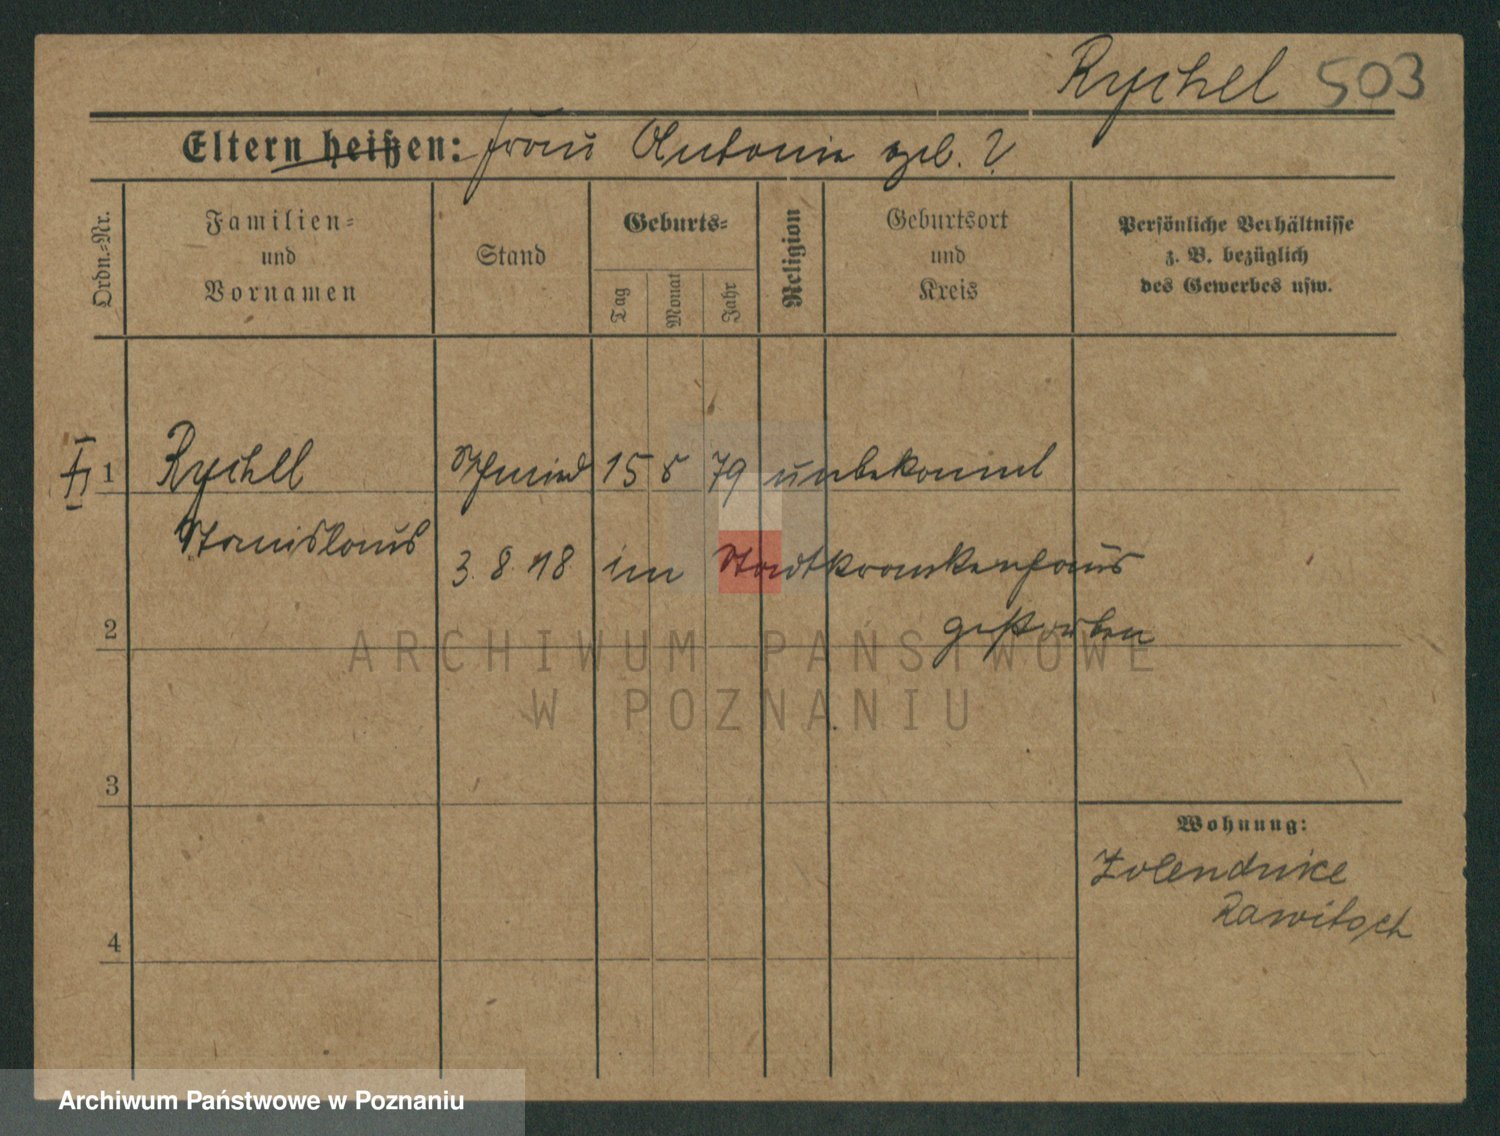 Rychel 503
Eltern heißen: Frau Antonie geb. ?
Ordn.-Nr.
Familien-
und
Vornamen
Stand
Geburts-
Tag
Monat
Jahr
Religion
Geburtsort
und
Kreis
Persönliche Verhältnisse
z. B. bezüglich
des Gewerbes usw.
1 Rychel Schmied 15 5 79 unbekannt
Stanislaus
3. 8. 18 im Stadtkrankenhaus
2 gestorben
ARCHIWUM PAŃSTWOWE
W POZNANIU
3
Wohnung:
Zolendnice
Rawitsch
4
Archiwum Państwowe w Poznaniu